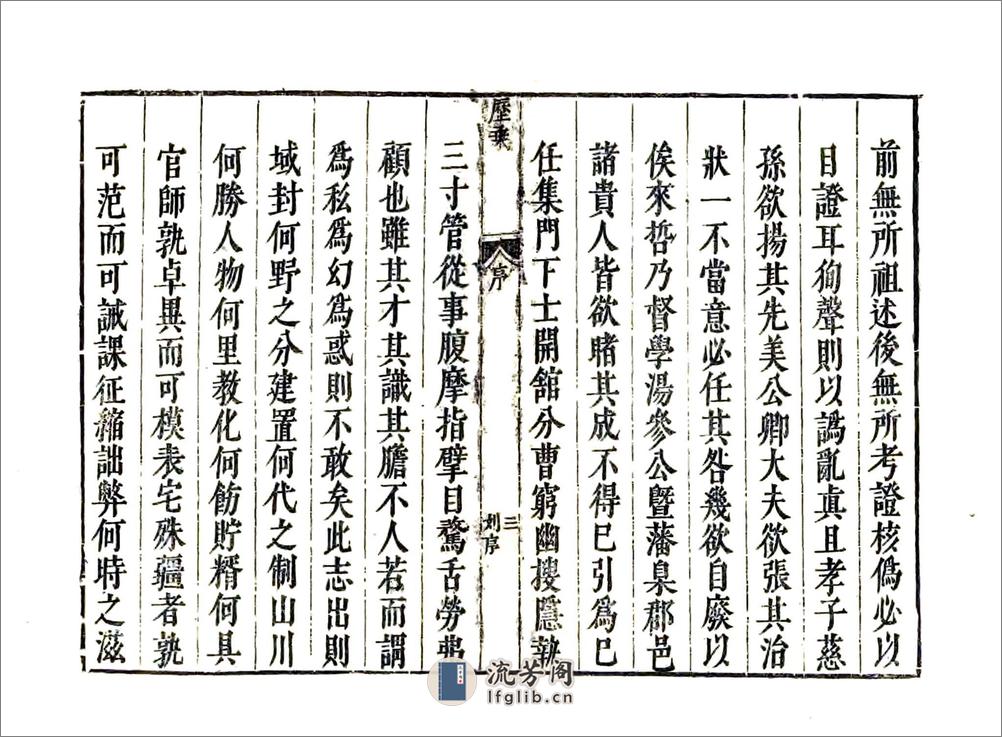 前無所祖述後無所考證核僞必以
目證耳徇聲則以譌亂眞且孝子慈
孫欲揚其先美公卿大夫欲張其治
狀一不當意必任其咎幾欲自廢以
俟來哲乃督學湯參公曁藩臬郡邑
諸貴人皆欲睹其成不得已引爲己
任集門下士開舘分曹窮幽搜隱執
歷乘
序
三
刘序
三寸管從事腹摩指擘目騖舌勞弗
顧也雖其才其識其膽不人若而謂
爲私爲幻爲惑則不敢矣此志出則
域封何野之分建置何代之制山川
何勝人物何里教化何飭貯糈何具
官師孰卓異而可模表宅殊疆者孰
可范而可誡課征縮詘弊何時之滋
流芳阁
lfglib.cn